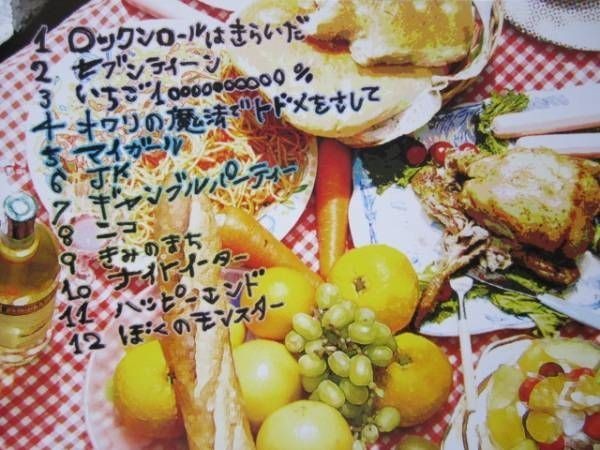 1 ロックンロールはきらいだ
2 セブンティーン
3 いちご10000000000%
4 オワリの魔法でトドメをさして
5 マイガール
6 JK
7 ギャンブルパーティー
8 ニコ
9 きみのまち
10 ナイトイーター
11 ハッピーエンド
12 ぼくのモンスター